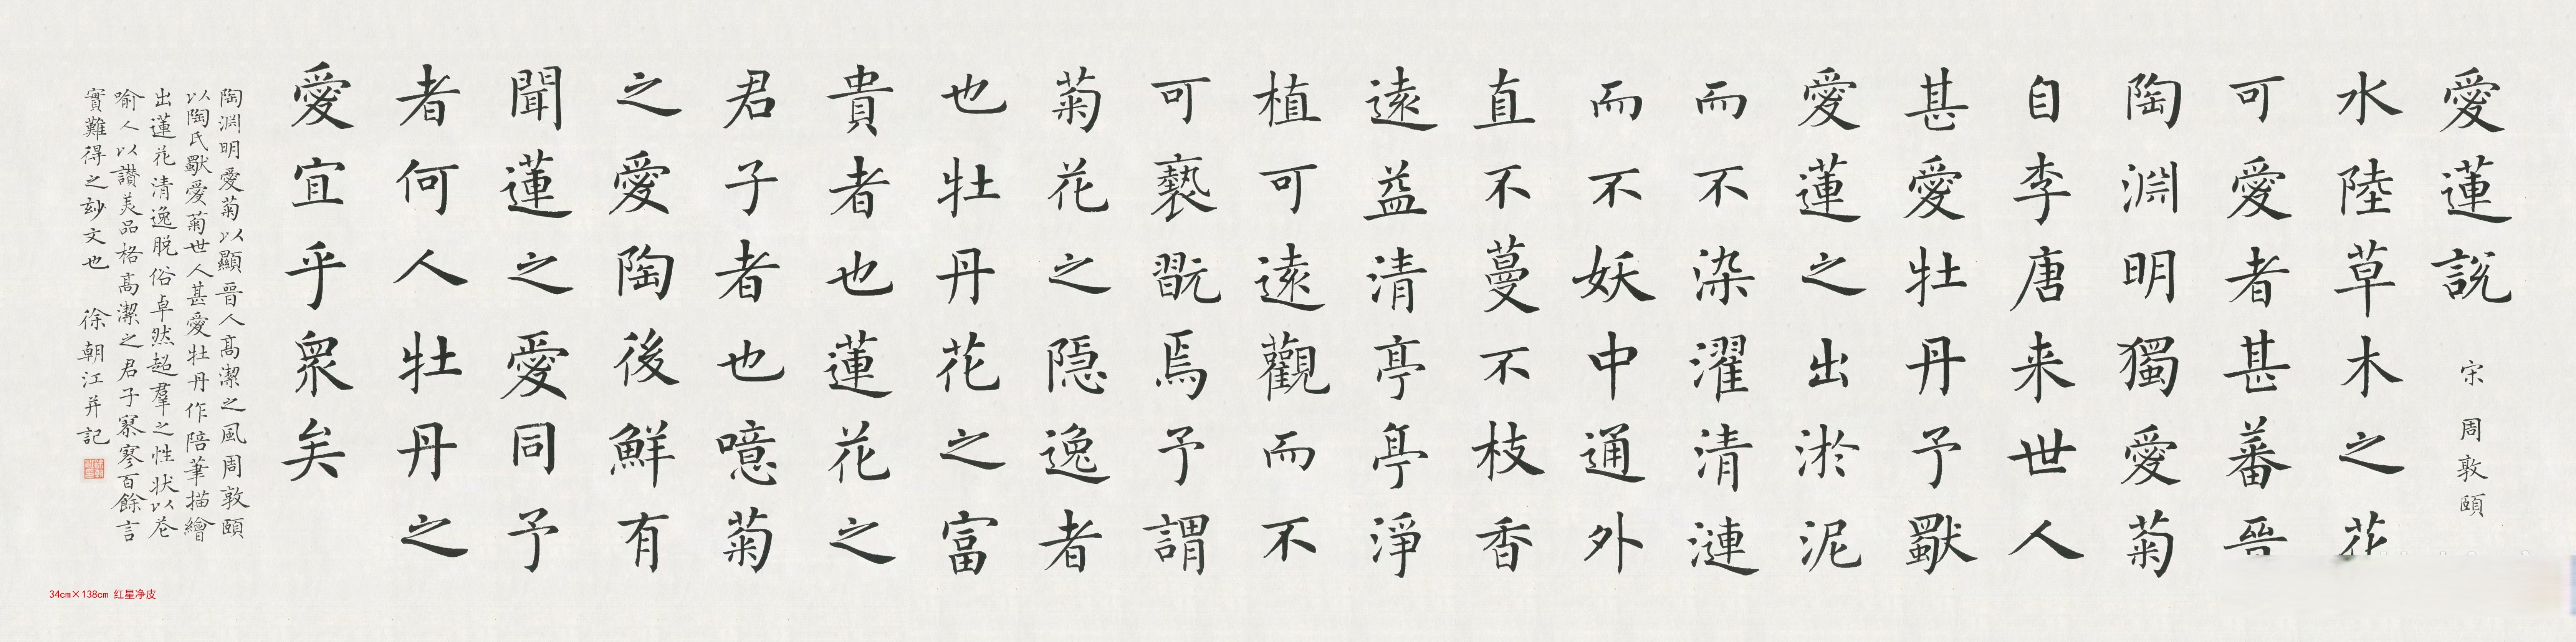 愛蓮説 宋 周敦頤
水陸草木之花
可愛者甚蕃晉
陶淵明獨愛菊
自李唐来世人
甚愛牡丹予獨
愛蓮之出淤泥
而不染濯清漣
而不妖中通外
直不蔓不枝香
遠益清亭亭淨
植可遠觀而不
可褻翫焉予謂
菊花之隠逸者
也牡丹花之富
貴者也蓮花之
君子者也噫菊
之愛陶後鮮有
聞蓮之愛同予
者何人牡丹之
愛宜乎衆矣
陶淵明愛菊以顯晉人高潔之風周敦頤
以陶氏獨愛菊世人甚愛牡丹作陪筆描繪
出蓮花清逸脱俗卓然超羣之性状以花
喻人以讚美品格高潔之君子寥寥百餘言
實難得之妙文也 徐朝江并記
34cm×138cm 红星净皮